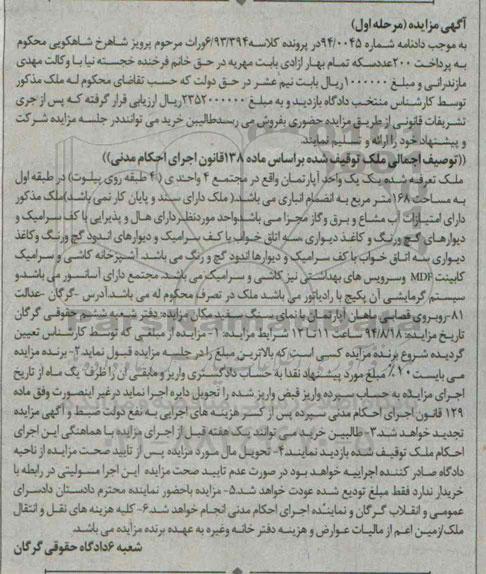 آگهی مزایده (مرحله اول)
به موجب دادنامه شماره ۹۴/۰۰۴۵در پرونده کلاسه۶/۹۳/۳۹۴وراث مرحوم پرویز شاهرخ شاهکویی محکوم
به پرداخت ۲۰۰عددسکه تمام بهار ازادی بابت مهریه در حق خانم فرخنده خجسته نیا با وکالت مهدی
مازندرانی و مبلغ ۱۰۰۰۰۰۰ریال بابت نیم عشر در حق دولت که حسب تقاضای محکوم له ملک مذکور
توسط کارشناس منتخب دادگاه بازدید و به مبلغ ۲۳۵۲۰۰۰۰۰۰ریال ارزیابی قرار گرفته که پس از جری
تشریفات قانونی از طریق مزایده حضوری بفروش می رسدطالبین خرید می تواننددر جلسه مزایده شرکت
و پیشنهاد خود را ارائه و تسلیم نمایند
((توصیف اجمالی ملک توقیف شده براساس ماده ۱۳۸قانون اجرای احکام مدنی))
ملک تعرفه شده یک یک واحد آپارتمان واقع در مجتمع ۴ واحدی (۴ طبقه روی پیلوت) در طبقه اول
به مساحت ۱۶۸متر مربع به انضمام انباری می باشد.( ملک دارای سند و پایان کار نمی باشد)ملک مذکور
دارای امتیازات آب مشاع و برق وگاز مجزا می باشدواحد موردنظردارای هال و پذیرایی با کف سرامیک و
دیوارهای گچ ورنگ و کاغذ دیواری ،سه اتاق خواب با کف سرامیک و دیوارهای اندود گچ ورنگ وکاغذ
دیواری سه اتاق خواب با کف سرامیک و دیوارها اندود گچ و رنگ می باشد. آشپزخانه کاشی و سرامیک
کابینت MDF وسرویس های بهداشتی نیز کاشی و سرامیک می باشد. مجتمع دارای آسانسور می باشدو
سیستم گرمایشی آن پکیج با رادیاتور می باشد ملک در تصرف محکوم له می باشد.آدرس -گرگان -عدالت
۸۱-روبروی قصابی ماهان آپارتمان با نمای سنگ سفید مکان مزایده:دفتر شعبه ششم حقوقی گرگان
تاریخ مزایده: ۹۴/۸/۱۸ ساعت ۱۱تا ۱۲ شرایط مزایده: ۱- مزایده از مبلغی که توسط کارشناس تعیین
گردیده شروع برنده مزایده کسی است که بالاترین مبلغ را در جلسه مزایده قبول نماید.۲- برنده مزایده
می بایست ۱۰٪ مبلغ مورد پیشنهاد نقدا به حساب دادگستری واریز و مابقی آن را ظرف یک ماه از تاریخ
اجرای مزایده به حساب سپرده واریز قبض واریز شده را تحویل دایره اجرا نماید درغیر اینصورت وفق ماده
۱۲۹ قانون اجرای احکام مدنی سپرده پس از کسر هزینه های اجرایی به نفع دولت ضبط و آگهی مزایده
تجدید خواهد شد.۳-طالبین خرید می توانند یک هفته قبل از اجرای مزایده با هماهنگی این اجرای
احکام ملک توقیف شده بازدید نمایند.۴- تحویل مال مورد مزایده پس از تایید صحت مزایده از ناحیه
دادگاه صادر کننده اجراییه خواهد بود در صورت عدم تایید صحت مزایده این اجرا مسولیتی در رابطه با
خریدار ندارد فقط مبلغ تودیع شده عودت خواهد شد.۵- مزایده باحضور نماینده محترم دادستان دادسرای
عمومی و انقلاب گرگان و نماینده اجرای احکام مدنی انجام خواهد شد.۶- کلیه هزینه های نقل و انتقال
ملک/زمین اعم از مالیات عوارض و هزینه دفتر خانه وغیره به عهده برنده مزایده می باشد.
شعبه ۶دادگاه حقوقی گرگان